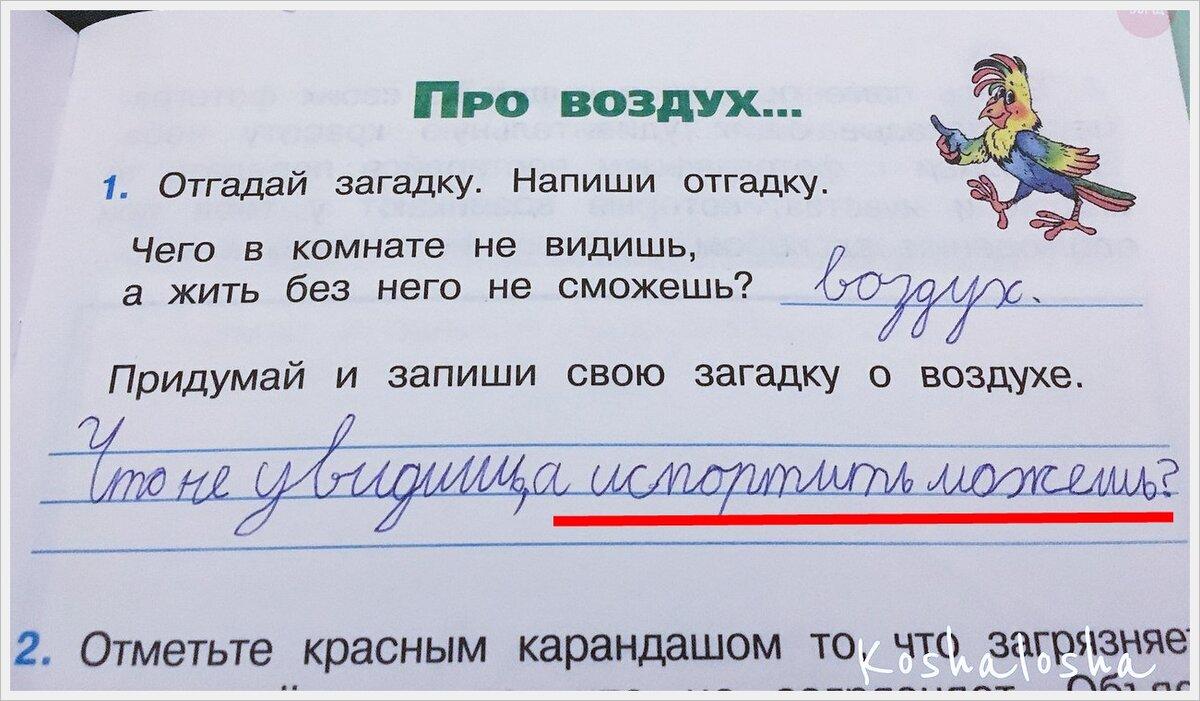 Про воздух...
1. Отгадай загадку. Напиши отгадку.
Чего в комнате не видишь,
а жить без него не сможешь? воздух.
Придумай и запиши свою загадку о воздухе.
Что не увидишь, а испортить можешь?
2. Отметьте красным карандашом то, что загрязняет
Koshalosha